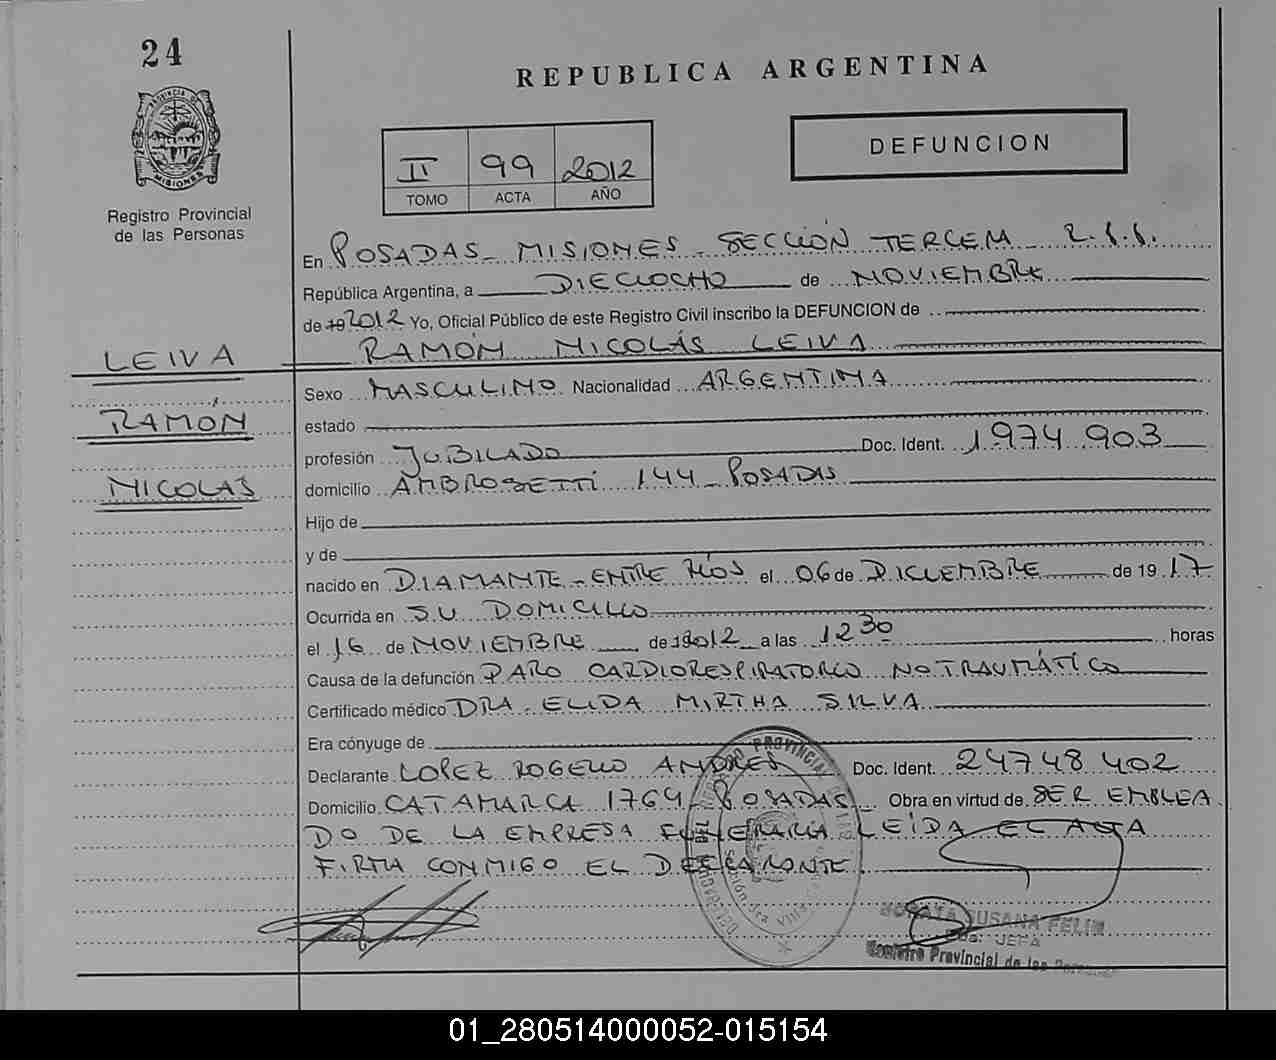 24
REPUBLICA ARGENTINA
PROVINCIA DE
MISIONES
Registro Provincial
de las Personas
II 99 2012
TOMO ACTA AÑO
DEFUNCION
En POSADAS - MISIONES - SECCIÓN TERCERA
República Argentina, a DIECIOCHO de NOVIEMBRE
de 19 2012 Yo, Oficial Público de este Registro Civil inscribo la DEFUNCION de
LEIVA RAMÓN NICOLÁS LEIVA
Sexo MASCULINO Nacionalidad ARGENTINA
RAMÓN estado
profesión JUBILADO Doc. Ident. 1974 903
NICOLÁS domicilio AMBROSETTI 144 - POSADAS
Hijo de
y de
nacido en DIAMANTE - ENTRE RÍOS el 06 de DICIEMBRE de 19 17
Ocurrida en SU DOMICILIO
el 16 de NOVIEMBRE de 2012 a las 12 30 horas
Causa de la defunción PARO CARDIORESPIRATORIO NO TRAUMÁTICO
Certificado médico DRA. ELIDA MIRTHA SILVA
Era cónyuge de
Declarante LOPEZ ROGELIO ANDRES Doc. Ident. 24748402
Domicilio CATAMARCA 1764 - POSADAS Obra en virtud de SER EMPLEA
DO DE LA EMPRESA FUNERARIA LEÍDA EL ACTA
FIRMA CONMIGO EL DECLARANTE
SUSANA FELIM
JEFA
Registro Provincial de las Personas
01_280514000052-015154